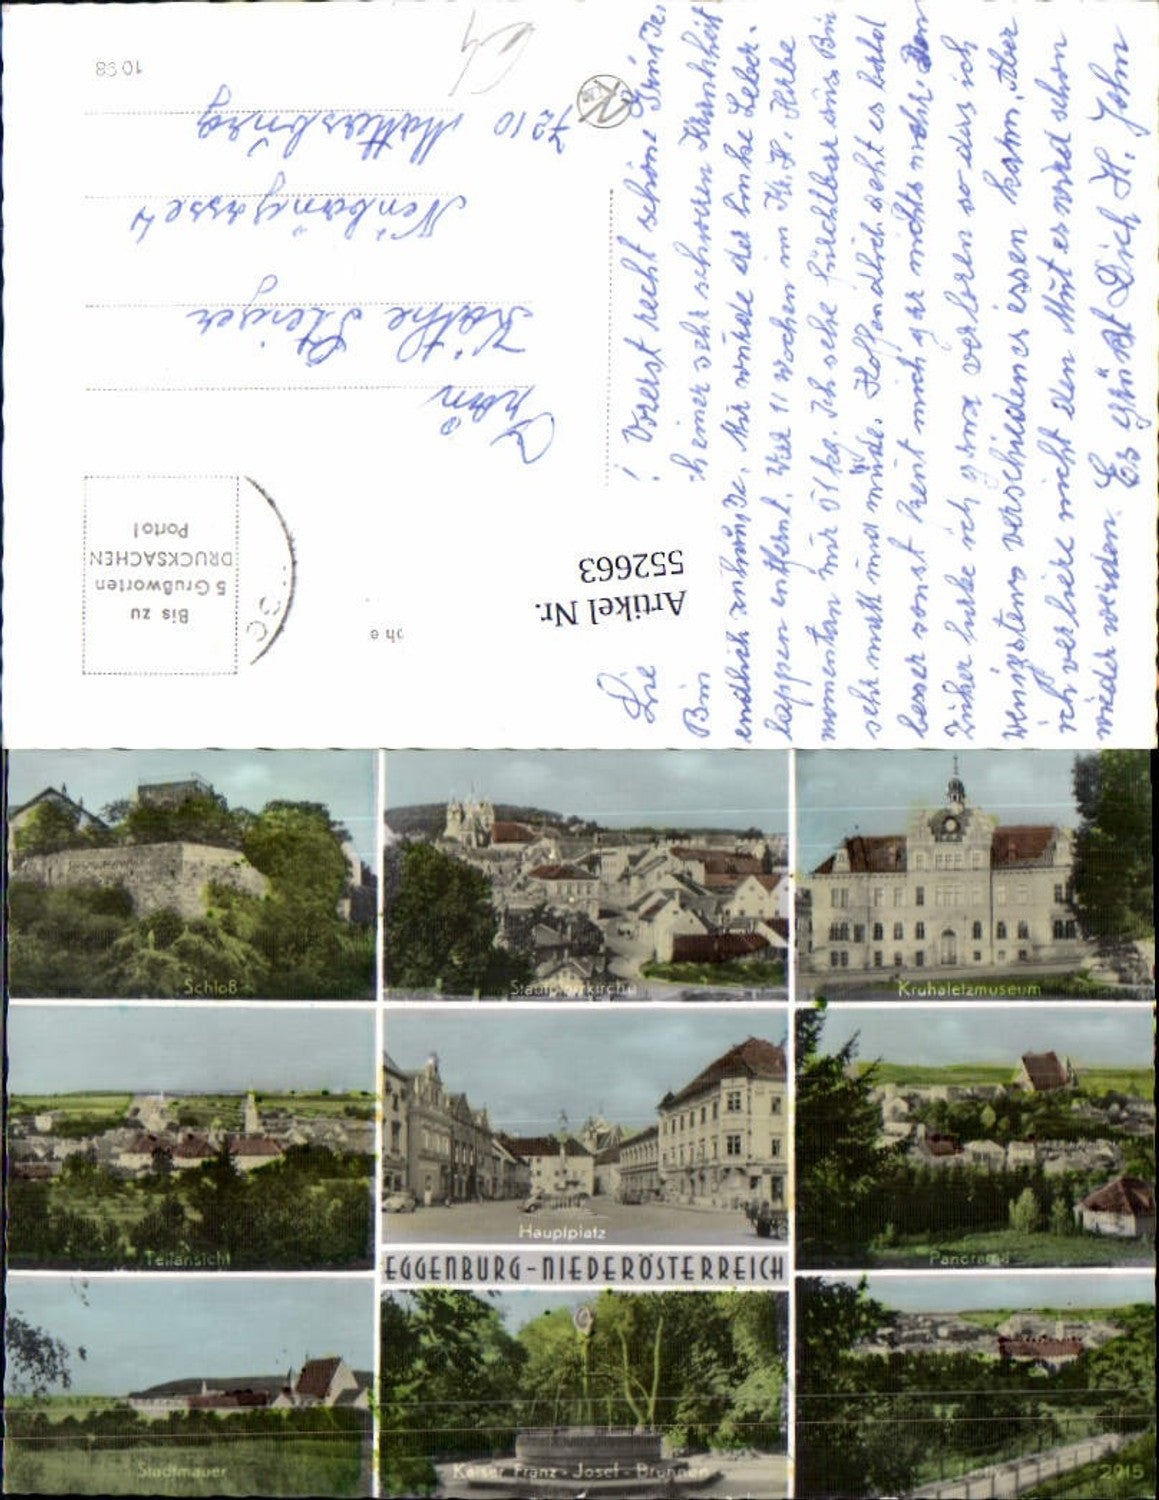 Vorerst recht schöne Grüsse,
Lie !
Bin seiner sehr schweren Krankheit
endlich zuhause. Mir wurde der linke Leber-
lappen entfernt. War 11 Wochen im Kr. H. Habe
momentan nur 51 kg. Ich sehe furchtbar aus Bin
sehr matt und müde. Hoffendlich geht es bald
besser sonst freut mich gar nichts mehr. Den
Zuker habe ich ganz verloren so das ich
wenigstens verschiedenes essen kann. Aber
ich verliere nicht den Mut es wird schon
wieder werden. Es grüßt Dich H. John
Artikel Nr.
552663
Bis zu
5 Grußworten
DRUCKSACHEN
Porto!
Käthe Steiger
Neubaugasse 4
7210 Mattersburg
1098
Schloß
Stadtpfarrkirche
Kruhaletzmuseum
Teilansicht
Hauptplatz
Panorama
EGGENBURG-NIEDERÖSTERREICH
Stadtmauer
Kaiser Franz-Josef-Brunnen
2915